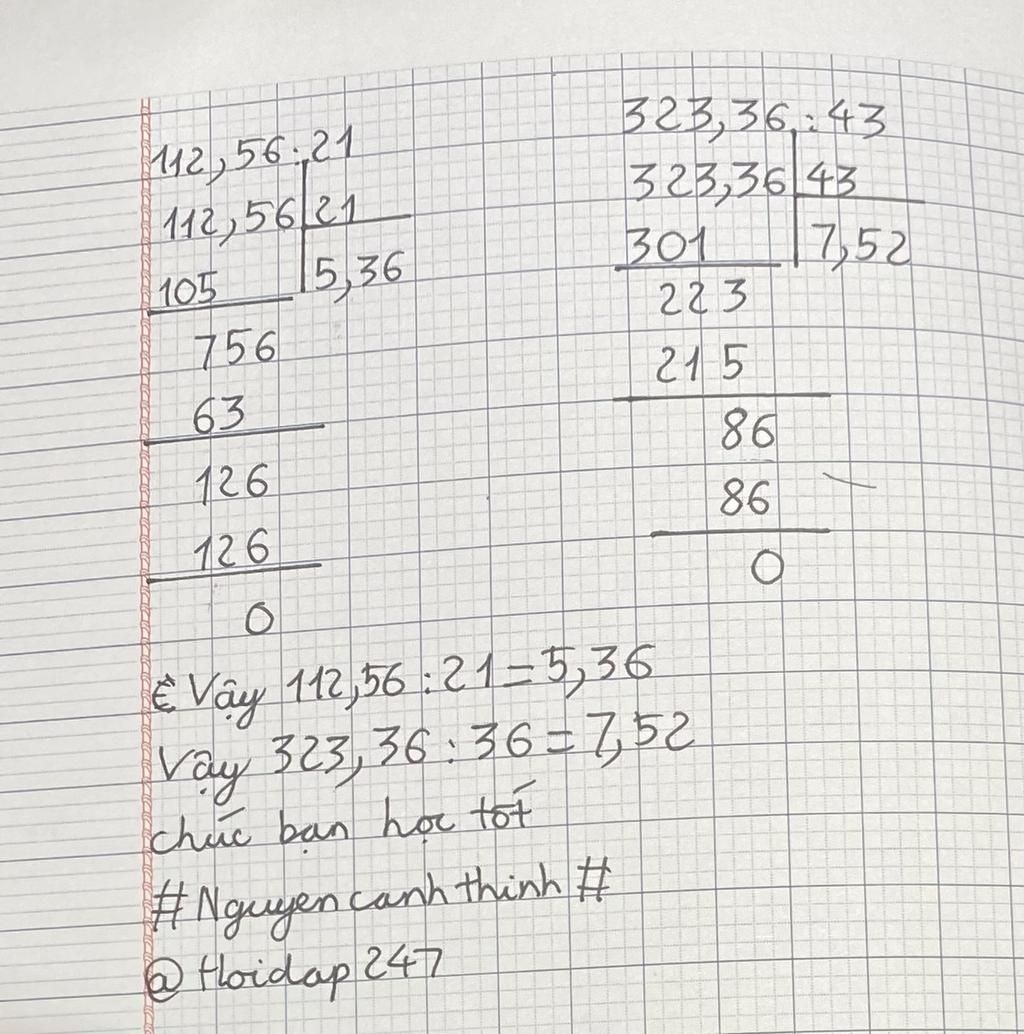 112,56 : 21
112,56 21
105 5,36
756
63
126
126
0
323,36 : 43
323,36 43
301 7,52
223
215
86
86
0
Vậy 112,56 : 21 = 5,36
Vậy 323,36 : 36 = 7,52
chúc bạn học tốt
#Nguyencanhthinh#
@Hoidap247